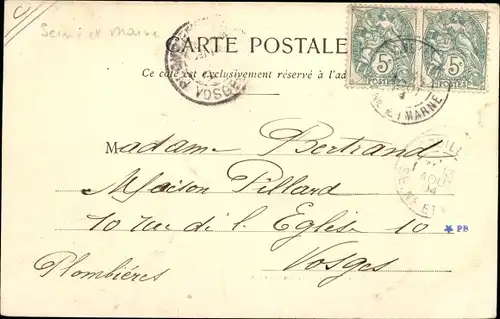 Seine et Marne
CARTE POSTALE
Ce côté est exclusivement réservé à l'ad
5c 5c
POSTES POSTES
VOSGES
MARNE
Madame Bertrand
Maison Pillard
10 rue de l'Eglise 10
PB
Vosges
Plombières